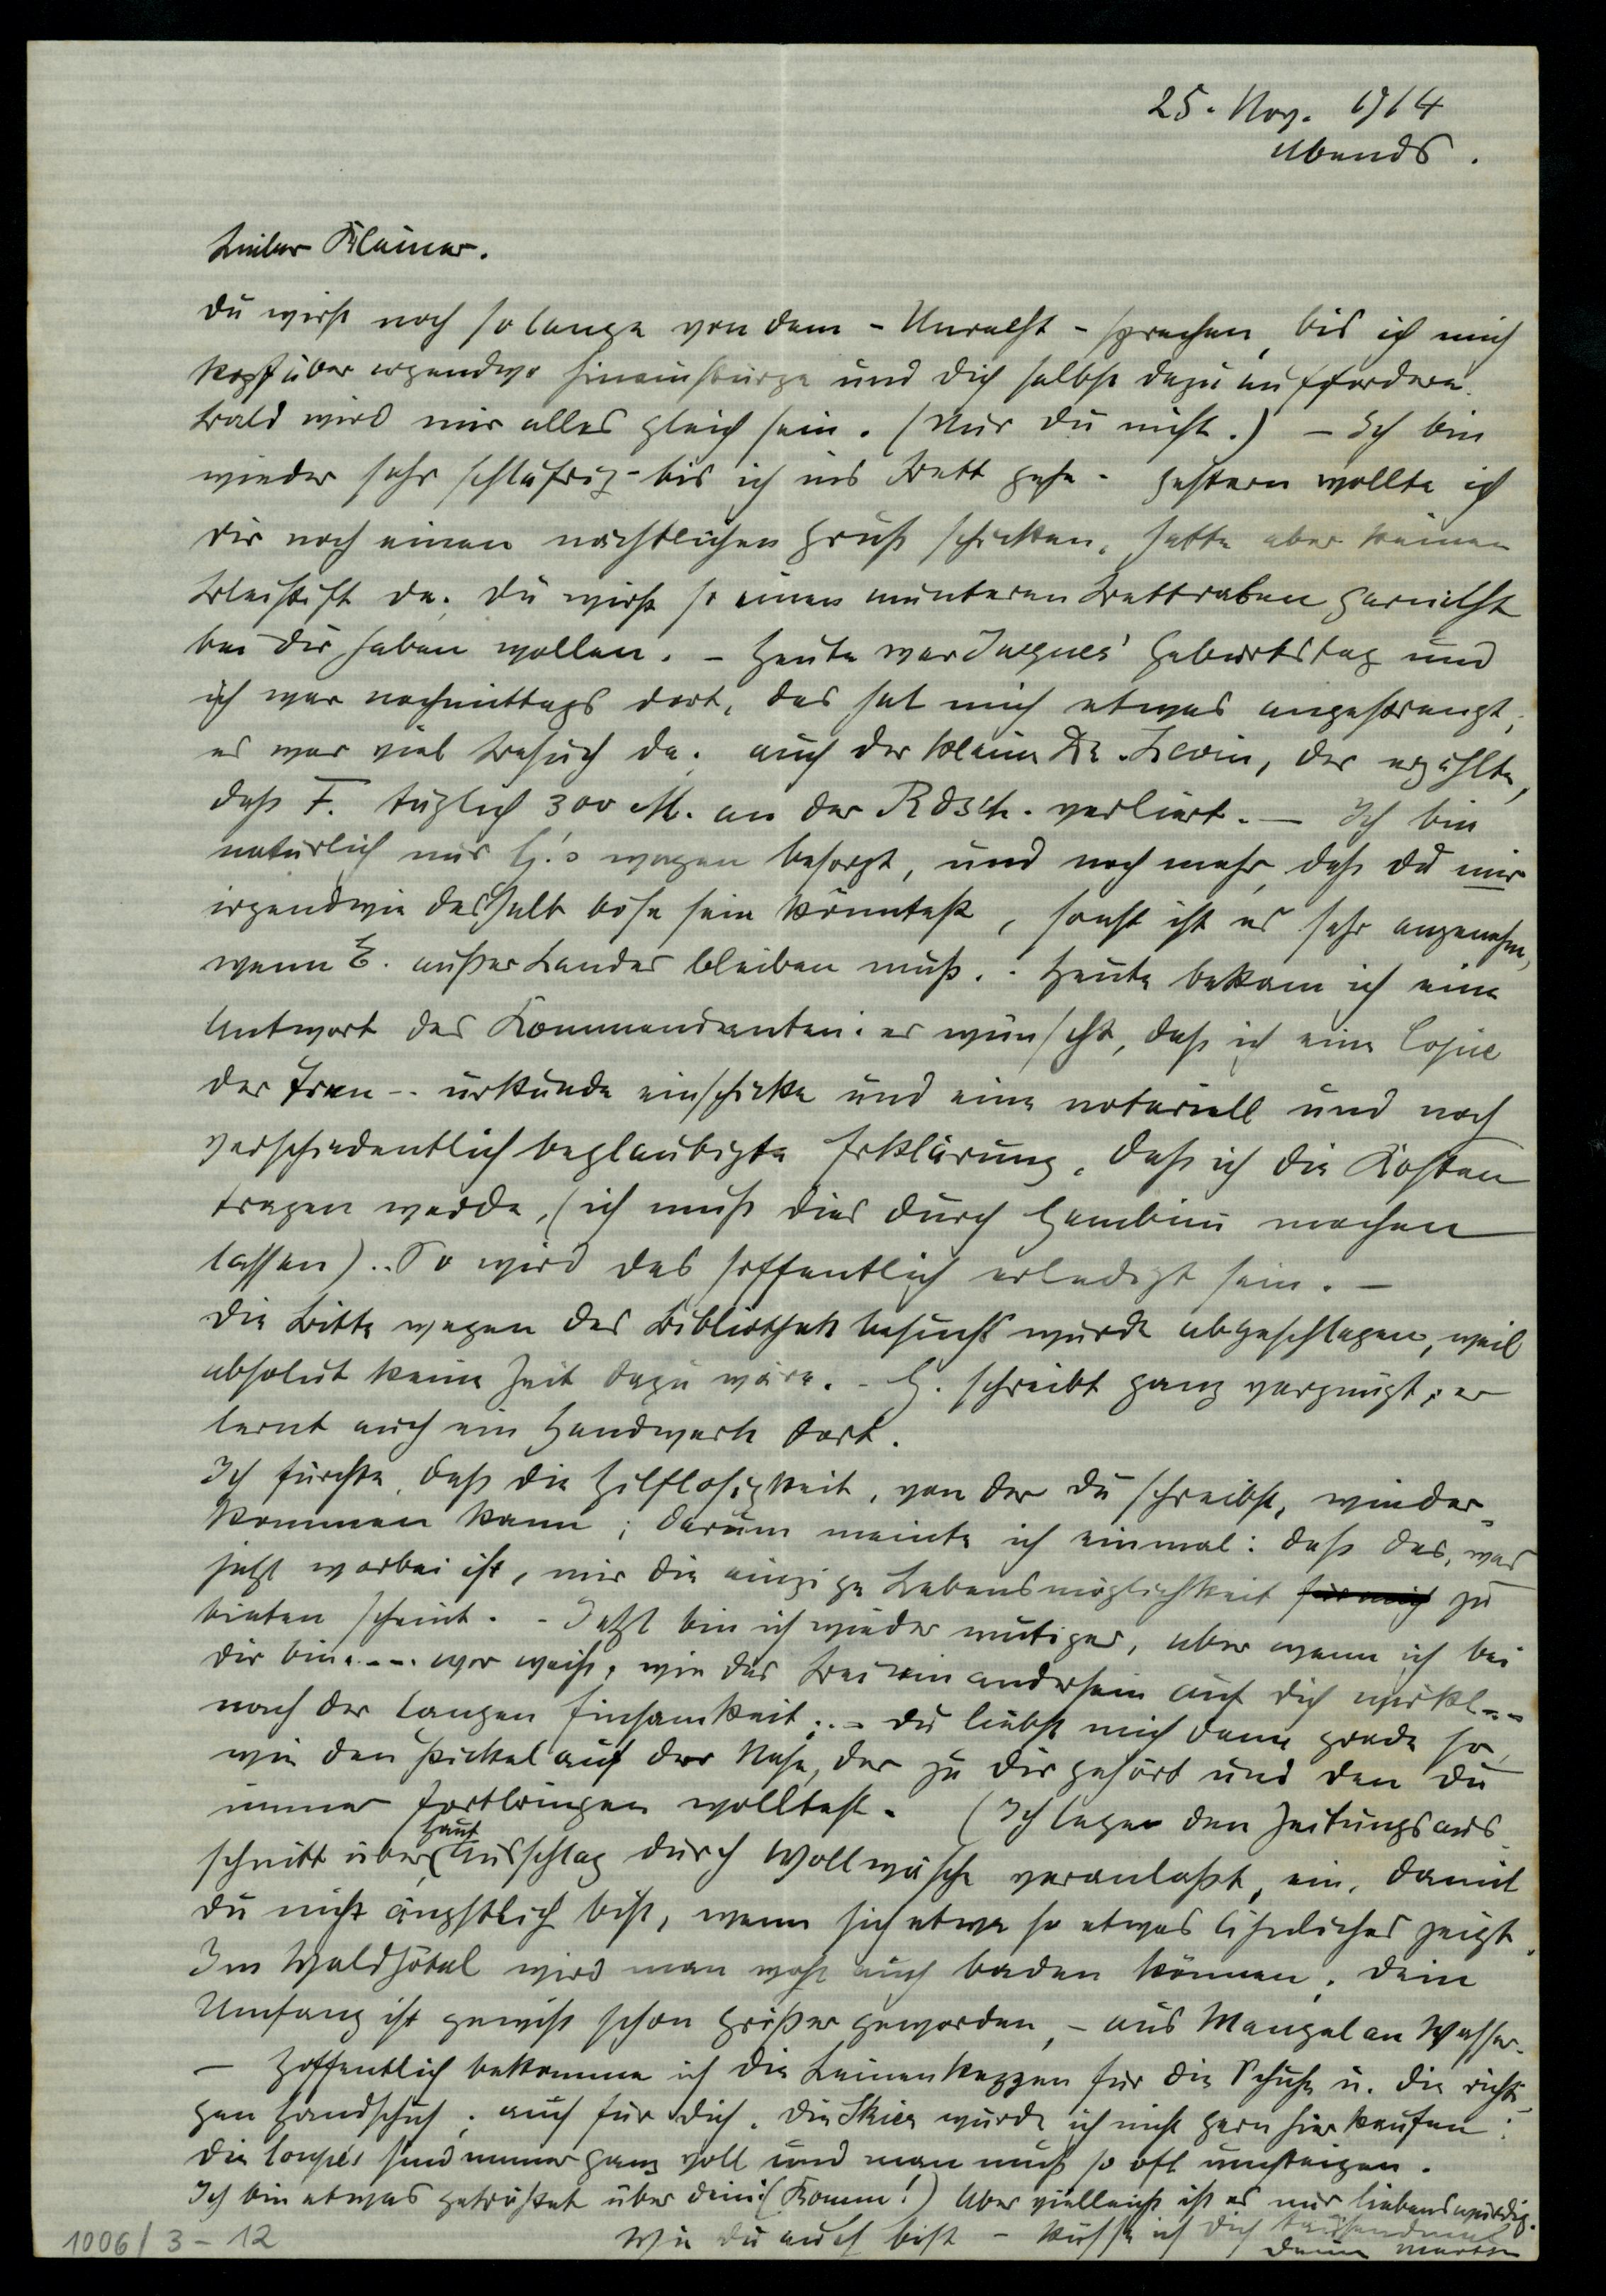 25. Nov. 1914
Abends.
Lieber Kleiner.
Du wirst noch so lange von dem - Unrecht - sprechen, bis ich mich
kopfüber irgendwo hineinstürze und dich selbst dazu auffordere.
Bald wird mir alles gleich sein. (Nur du nicht.) – Ich bin
wieder sehr schläfrig - bis ich ins Bett gehe - gestern wollte ich
dir noch einen nächtlichen Gruß schicken, hatte aber keinen
Bleistift da. Du wirst so einen munteren Bettraben garnicht
bei dir haben wollen. – Heute war Jacques' Geburtstag und
ich war nachmittags dort, das hat mich etwas angestrengt;
es war viel Besuch da; auch der kleine Dr. Levin, der erzählte,
daß F. täglich 300 M. an der Rdsch. verliert. – Ich bin
natürlich nur H.'s wegen besorgt, und noch mehr, daß du mir
irgendwie deshalb böse sein könntest, sonst ist es sehr angenehm,
wenn E. außer Landes bleiben muß. - Heute bekam ich eine
Antwort des Kommandanten: er wünscht, daß ich eine Copie
der Tren-- urkunde einschicke und eine notariell und noch
verschiedentlich beglaubigte Erklärung, daß ich die Kosten
tragen werde, (ich muß dies durch machen
lassen).. So wird das hoffentlich erledigt sein. –
Die Bitte wegen des Bibliothek besuchs wurde abgeschlagen, weil
absolut keine Zeit dazu wäre. - H. schreibt ganz vergnügt; er
lernt auch ein Handwerk dort.
Ich fürchte, daß die Hilflosigkeit, von der du schreibst, wieder-
kommen kann; darum meinte ich einmal: daß das, was
jetzt vorbei ist, mir die einzige Lebensmöglichkeit für mich zu
bieten scheint. - Jetzt bin ich wieder mutiger, aber wenn ich bei
dir bin.--. wer weiß, wie das Beieinandersein auf dich wirkt--
nach der langen Einsamkeit. – Du liebst mich dann grade so,
wie den Pickel auf der Nase, der zu dir gehört und den du
immer fortbringen wolltest. (Ich lege den Zeitungsaus-
schnitt über Hautausschlag durch Wollwäsche veranlaßt, ein, damit
du nicht ängstlich bist, wenn sich etwa so etwas ähnliches zeigt.
Im Waldhôtel wird man wohl auch baden können; dein
Umfang ist gewiß schon größer geworden, – aus Mangel an Wasser.
– Hoffentlich bekomme ich die Leinenkappen für die Schuhe u. die richti-
gen Handschuh; auch für dich. Die Skier würde ich nicht gern hier kaufen:
die Coupés sind immer ganz voll und man muß so oft umsteigen.
Ich bin etwas getröstet über dein: (Komm!) Aber vielleicht ist es nur liebenswürdig.
Wie du auch bist – küsse ich dich tausendmal
Deine Martha
1006/3-12